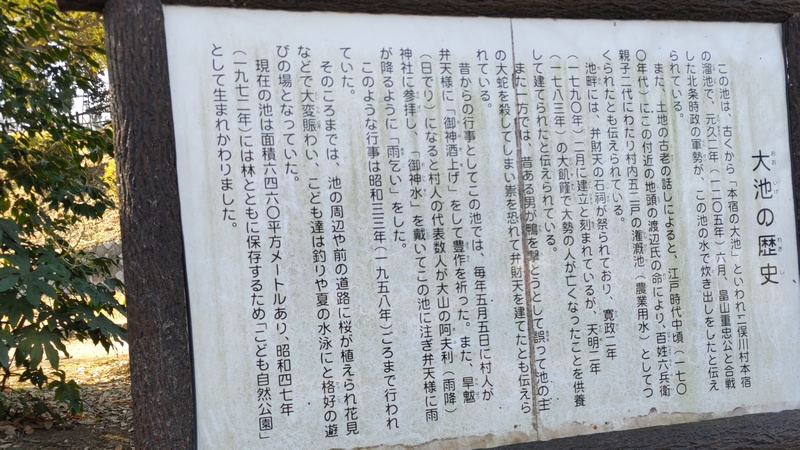 大池の歴史
おおいけ れきし
この池は、古くから「本宿の大池」といわれ二俣川村本宿
の溜池で、元久二年(一二〇五年)六月、畠山重忠公と合戦
した北条時政の軍勢が、この池の水で炊き出しをしたと伝え
られている。
また、土地の古老の話しによると、江戸時代中頃(一七〇
〇年代)にこの付近の地頭の渡辺氏の命により、百姓六兵衛
親子二代にわたり村内五二戸の潅漑池(農業用水)としてつ
くられたとも伝えられている。
池畔には、弁財天の石祠が祭られており、寛政二年
(一七九〇年)二月に建立と刻まれているが、天明二年
(一七八三年)の大飢饉で大勢の人が亡くなったことを供養
して建てられたと伝えられている。
また一方では、昔ある男が鴨を撃とうとして誤って池の主
の大蛇を殺してしまい祟を恐れて弁財天を建てたとも伝えら
れている。
昔からの行事としてこの池では、毎年五月五日に村人が
弁天様に「御神酒上げ」をして豊作を祈った。また、旱魃
(日でり)になると村人の代表数人が大山の阿夫利(雨降)
神社に参拝し、「御神水」を戴いてこの池に注ぎ弁天様に雨
が降るように「雨乞い」をした。
このような行事は昭和三三年(一九五八年)ごろまで行われ
ていた。
そのころまでは、池の周辺や前の道路に桜が植えられ花見
などで大変賑わい、こども達は釣りや夏の水泳にと格好の遊
びの場となっていた。
現在の池は面積六四六〇平方メートルあり、昭和四七年
(一九七二年)には林とともに保存するため「こども自然公園」
として生まれかわりました。